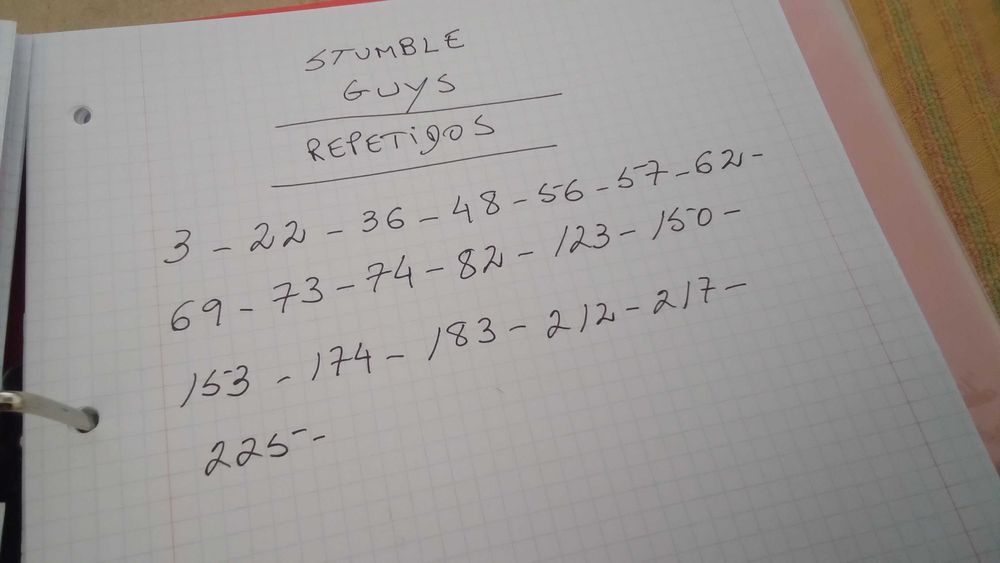 STUMBLE
GUYS
REPETIDOS
3 - 22 - 36 - 48 - 56 - 57 - 62 -
69 - 73 - 74 - 82 - 123 - 150 -
153 - 174 - 183 - 212 - 217 -
225 -